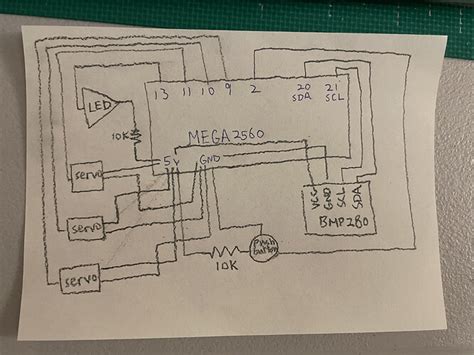 13 11 10 9 2 20 21
SDA SCL
LED
10K
MEGA2560
5V GND
servo
VCC GND SCL SDA
BMP280
servo
push
button
10K
servo